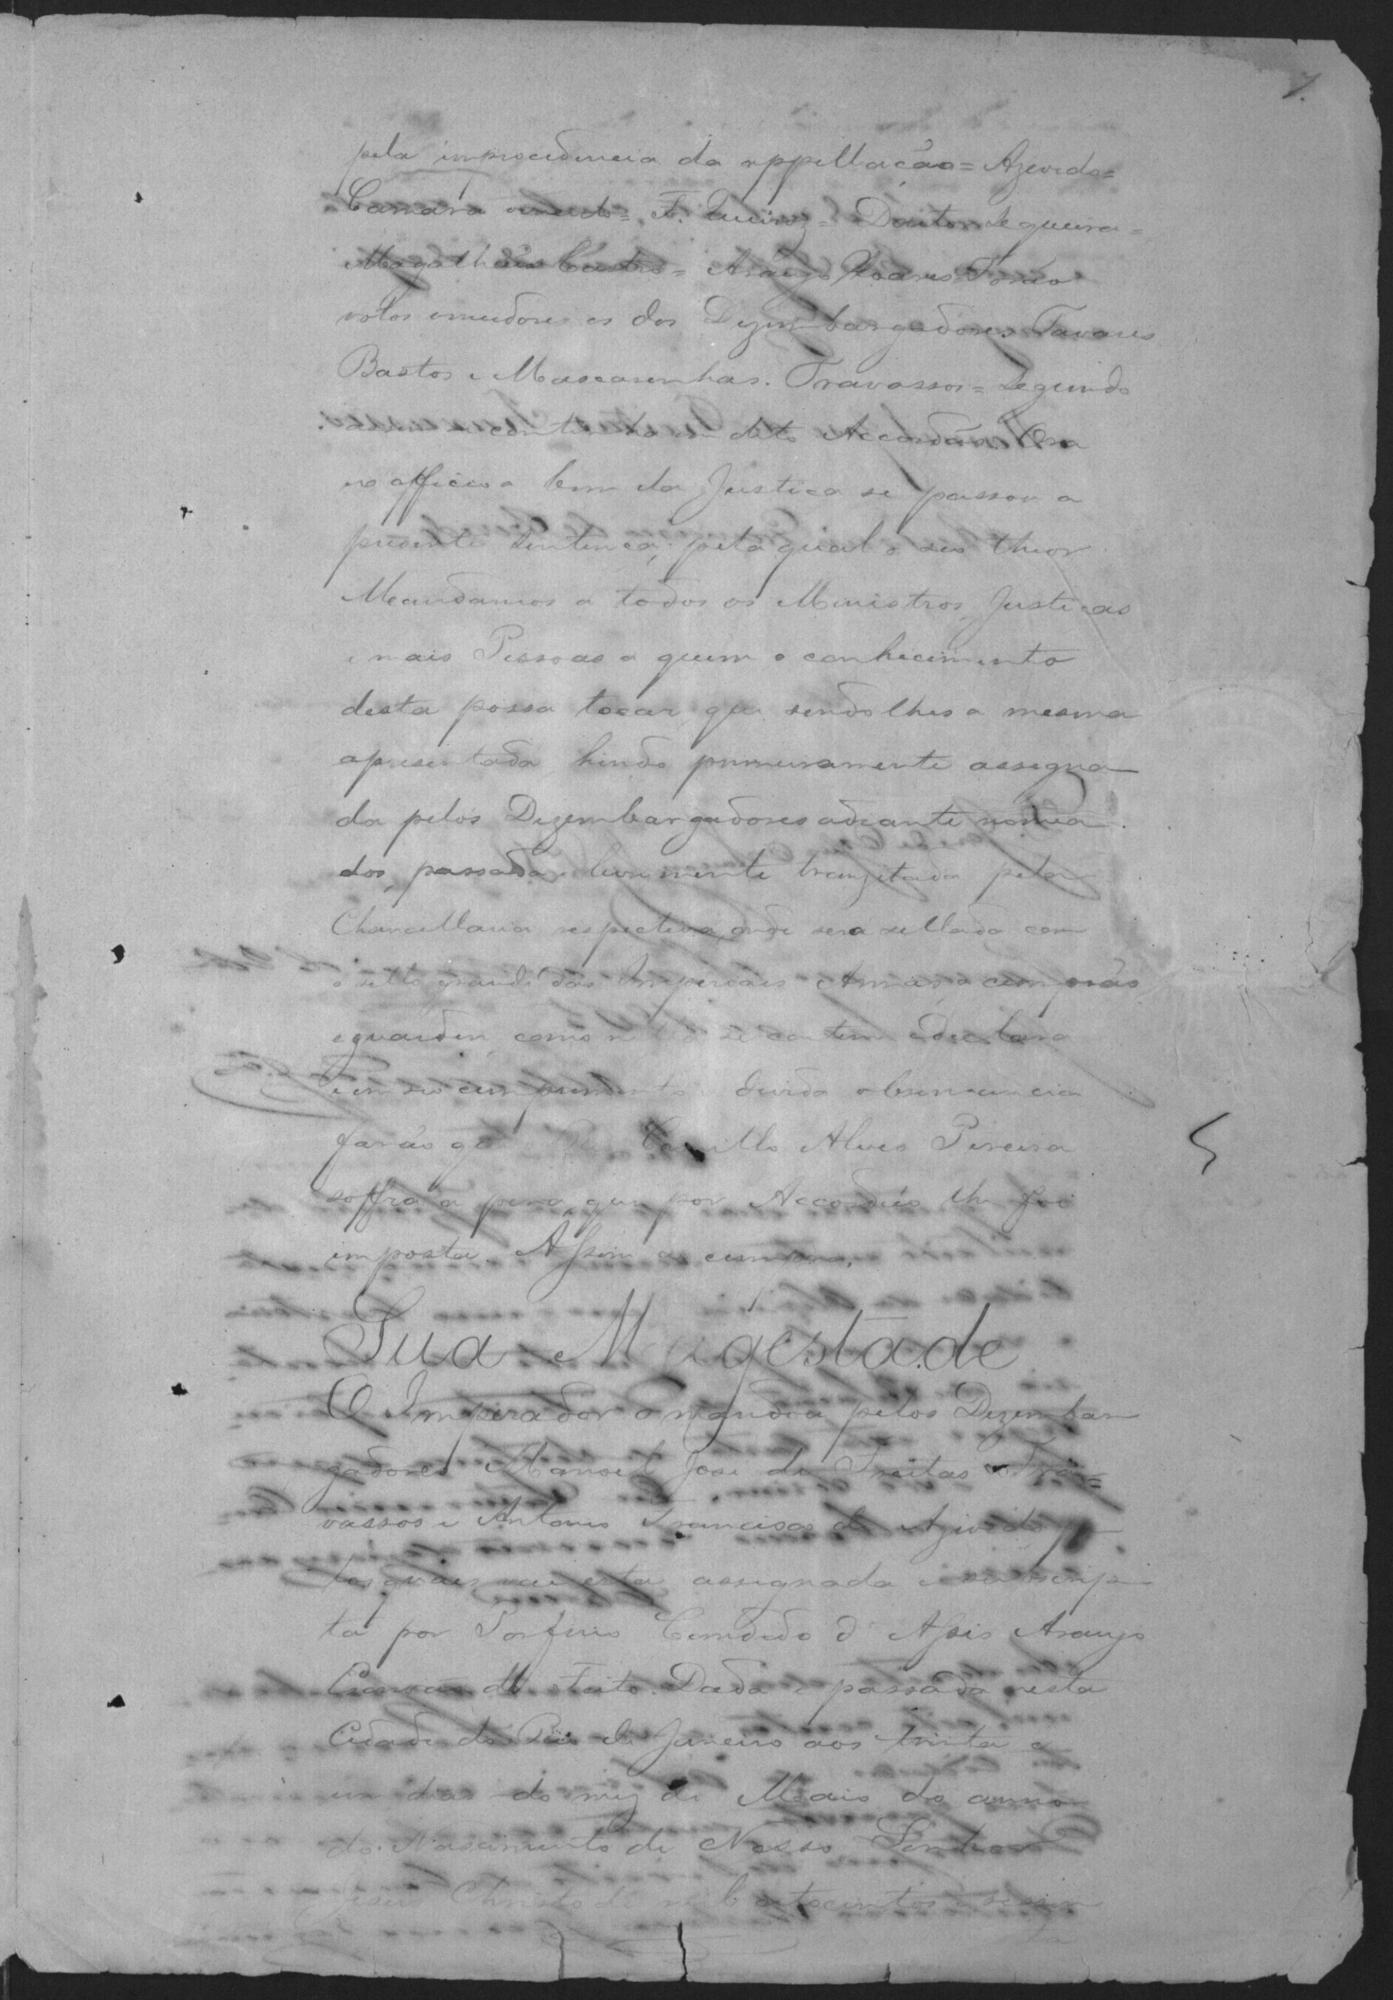 7.
pela improcedencia da appellação = Azevedo =
Camara vencido = F. Queiroz = Doutor Sequeira =
Magalhães Castro = Araujo Soares. Forão
votos vencedores os dos Dezembargadores Tavares
Bastos e Mascarenhas. Travassos = Segundo
conthido em dito Accordão Ora
ex officio a bem da Justica se passou a
presente Sentença, pela qual e seu theor
Mandamos a todos os Ministros, Justicas
e mais Pessoas a quem o conhecimento
desta possa tocar que sendo lhes a mesma
apresentada hindo primeiramente assigna
da pelos Dezembargadores adiante nomea
dos, passada e levemente tranzitada pela
Chancellaria respectiva, onde será sellada com
o sello grande das Imperiaes Armas a cumprão
e guardem como n'ella se contem e declara
e em seo cumprimento e devida observancia
farão q Camillo Alves Pereira
soffra a pena que por Accordão lhe foi
imposta. Assim a cumprão.
Sua Magestade
O Imperador o mandou pelos Dezembar
gadores Manoel José de Freitas Tra=
vassos e Antonio Francisco de Azevedo pe
los quaes vai esta assignada e subscrip
ta por Porfirio Candido d'Assis Araujo
Escrivão do feito. Dada e passada nesta
Cidade do Rio de Janeiro aos trinta e
um dias do mez de Maio do anno
do Nascimento de Nosso Senhor
Jesus Christo de mil oitocentos e sessen